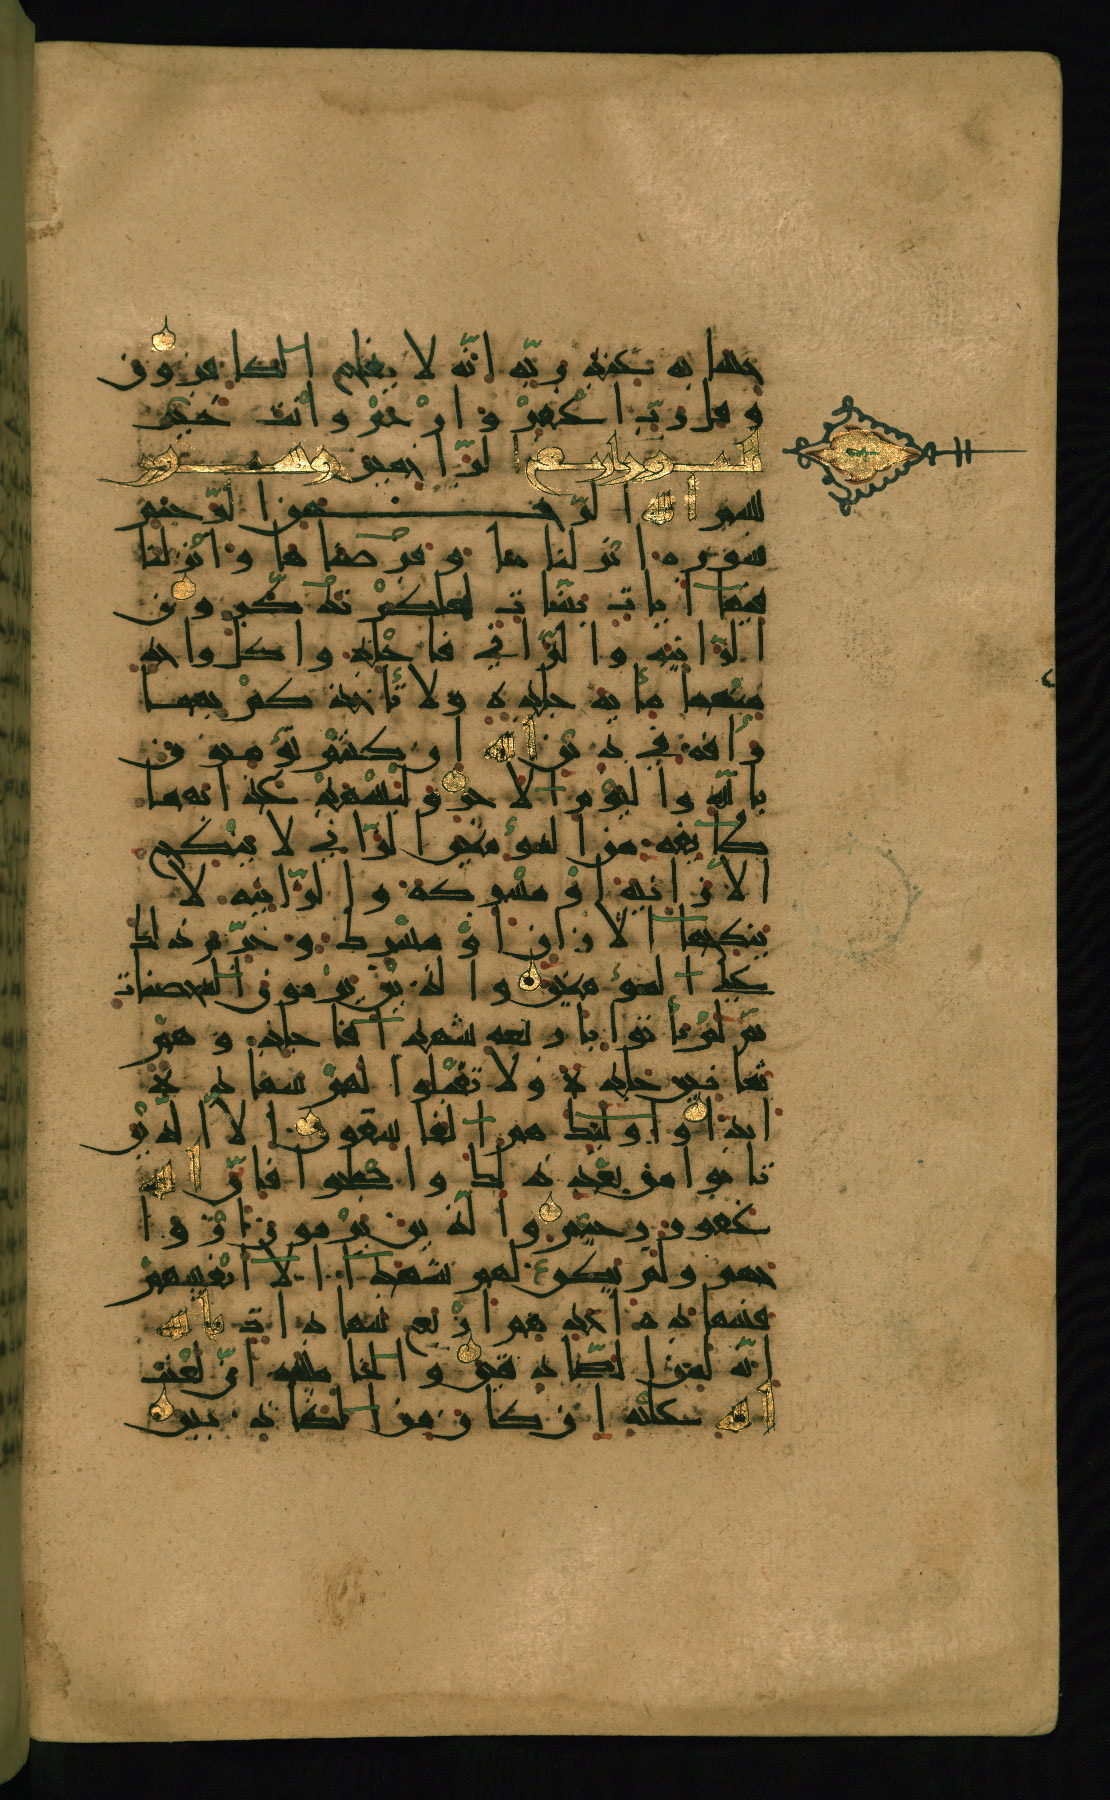 حسابه عند ربّه انّه لا يفلح الكافرون
وقل ربّ اغفر وارحم وانت خير
النور اربع الرّاحمين وستون
بسم الله الرّحمن الرّحيم
سورة انزلناها وفرضناها وانزلنا
فيها ايات بيّنات لعلكم تذكّرون
الزّانية والزّاني فاجلدوا كل واحد
منهما مأية جلدة ولا تأخذكم بهما
رأفة في دين الله ان كنتم تؤمنون
بالله واليوم الاخر وليشهد عذابهما
طائفة من المؤمنين الزّاني لا ينكح
الا زانية او مشركة والزّانية لا
ينكحها الا زان او مشرك وحرّم ذلك
على المؤمنين والذين يرمون المحصنات
ثم لم يأتوا باربعة شهدا فاجلدوهم
ثمانين جلدة ولا تقبلوا لهم شهادة
ابدا واولئك هم الفاسقون الّا الذين
تابوا من بعد ذلك واصلحوا فانّ الله
غفور رحيم والذين يرمون ازوا
جهم ولم يكن لهم شهدا الا انفسهم
فشهادة احدهم اربع شهادات بالله
انّه لمن الصّادقين والخامسة انّ لعنت
الله عليه ان كان من الكاذبين